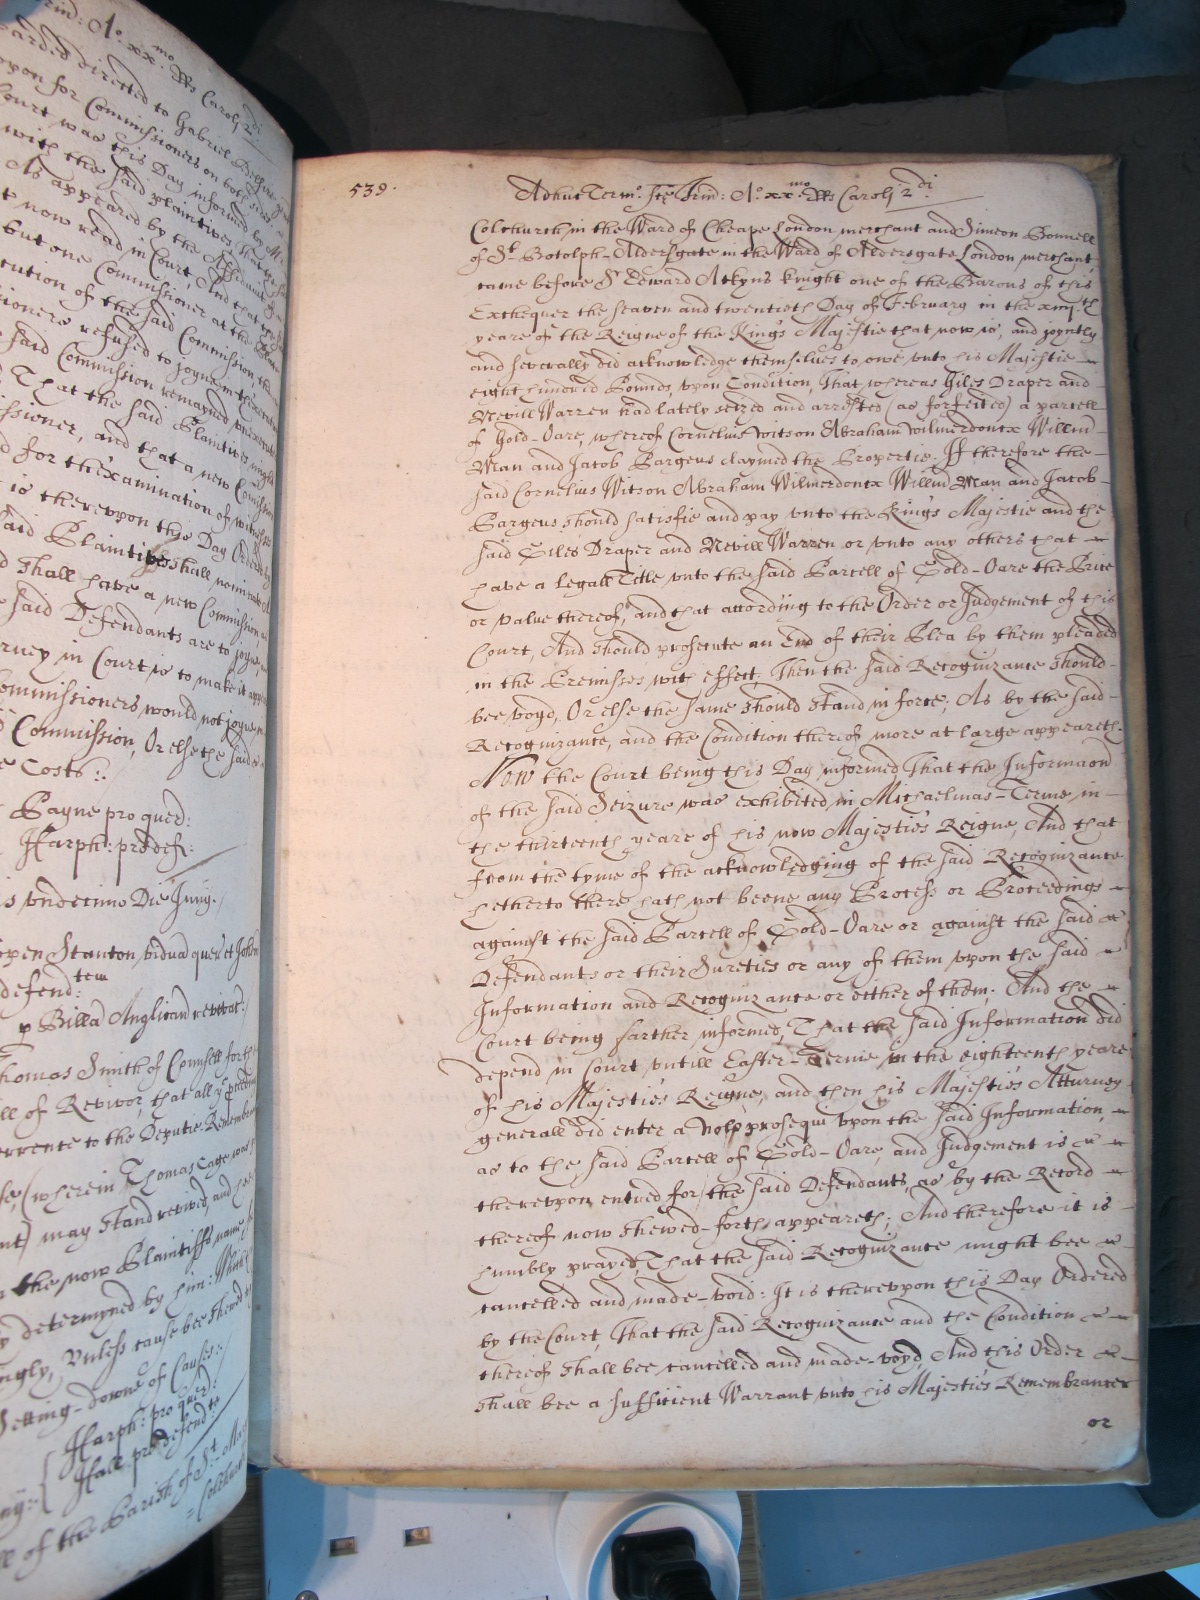 rin: Ao. xx.mo Rs Caroli 2di
arded directed to Gabriel
upon for Commissioners on both sides
Court was this Day informed by Mr
with the said plaintives That
As appeared by the Affidavit of
t now read in Court, And that the
but one Commissioner at the
cution of the said Commission, the
sioners refused to joyne in the
said Commission remayned vnexecuted
That the said Plaintives might
issioner, and that a new Comission
d for th'examination of witnesses
t is therevpon this Day Ordered
said Plaintives shall nominate
d shall have a new Commission,
e said Defendants are to joyne,
rney in Court is to make it appeare
ommissioners would not joyne in
d Commission, Or else the said
e Costs:.
Payne pro quer:
Harph: pro def:
is vndecimo Die Junij.
open Stanton, vidua quer et John
defend:tem
p Billa Anglican revivat:
Thomas Smith of Counsell for the
ll of Revivor, that all ye proceedings
rrente to the Deputie Remembran
se, (wherein Thomas Cage was
nt) may stand revived, and
n the now Plaintiffs name
y determyned by him: Which
ngly, Vnless cause bee shewed
Setting-downe of Causes:
Harph: pro quer:
Hall pro defend:t
ll of the Parish of St. M
=Colchurch
539.
Adhuc Termo. Ste Trin: Ao. xx.mo Rs Caroli 2di
Colchurch in the Ward of Cheape London merchant and Simeon Bonnell
of St. Botolph-Aldersgate in the Ward of Aldersgate London merchant,
came before Sr Edward Atkyns knight one of the Barons of this
Exchequer the seaven and twentieth Day of February in the xiiijth
yeare of the Reigne of the King's Majestie that now is, and joyntly
and severally did acknowledge themselues to owe vnto his Majestie
eight hundred Pounds, vpon Condition, That whereas Giles Draper and
Nevill Warren had lately seized and arrested (as forfeited) a parcell
of Gold-Oare, whereof Cornelius Witson Abraham Wilmerdonex Willm-
Man and Jacob Bargeus claymed the Propertie. If therefore the-
said Cornelius Witson Abraham Wilmerdonex Willm Man and Jacob-
Bargeus should satisfie and pay vnto the King's Majestie and the
said Giles Draper and Nevill Warren or vnto any others that
have a legall Title vnto the said Parcell of Gold-Oare the Price
or value thereof, and that according to the Order or Judgement of this
Court, And should prosecute an End of their Plea by them pleaded
in the Premisses with effect, Then the said Recognizance should-
bee voyd, Or else the same should stand in force; As by the said-
Recognizance, and the Condition thereof more at large appeareth.
Now the Court being this Day informed That the Informacon
of the said Seizure was exhibited in Michaelmas-Terme in-
the thirteenth yeare of his now Majestie's Reigne, And that
from the tyme of the acknowledging of the said Recognizance
hetherto there hath not beene any Process or Proceedings
against the said Parcell of Gold-Oare or against the said
Defendants or their Sureties or any of them vpon the said
Information and Recognizance or either of them. And the
Court being farther informed, That the said Information did
depend in Court vntill Easter-Terme in the eighteenth yeare
of his Majestie's Reigne, and then his Majestie's Atturney
generall did enter a Nolp prosequi vpon the said Information,
as to the said Parcell of Gold-Oare, and Judgement is
therevpon entred for the said Defendants, as by the Record
thereof now shewed-forth appeareth; And therefore it is
humbly prayed, That the said Recognizance might bee
cancelled and made-void: It is therevpon this Day Ordered
by the Court, That the said Recognizance and the Condition
thereof shall bee cancelled and made-voyd, And this Order
shall bee a sufficient Warrant vnto his Majestie's Remembrancer
or